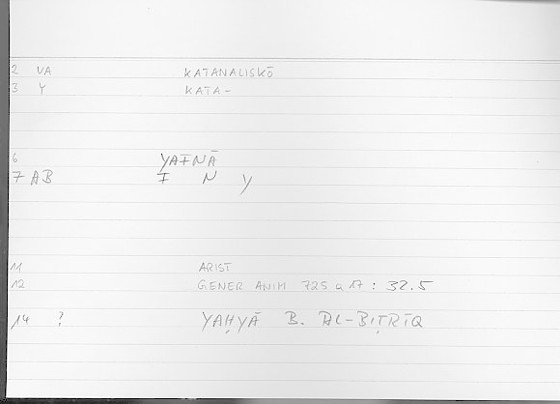 2 VA KATANALISKŌ
3 Y KATA-
6 YAFNĀ
7 AB F N Y
11 ARIST
12 GENER ANIM 725 a 17 : 32.5
14 ? YAḤYĀ B. AL-BIṬRĪQ